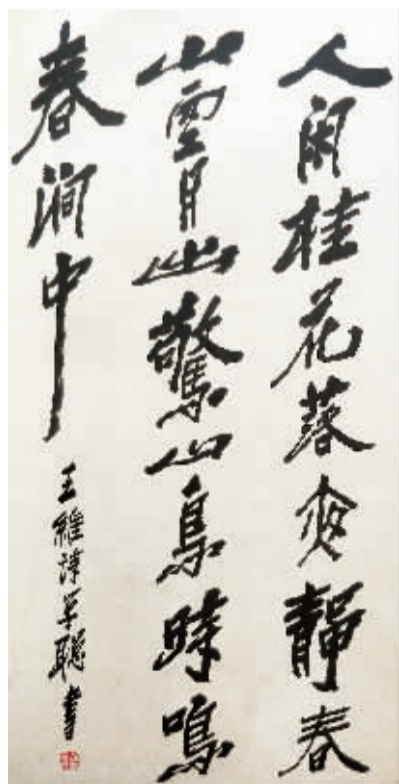 人闲桂花落夜靜春
山空月出驚山鳥時鳴
春涧中
王維詩聰書